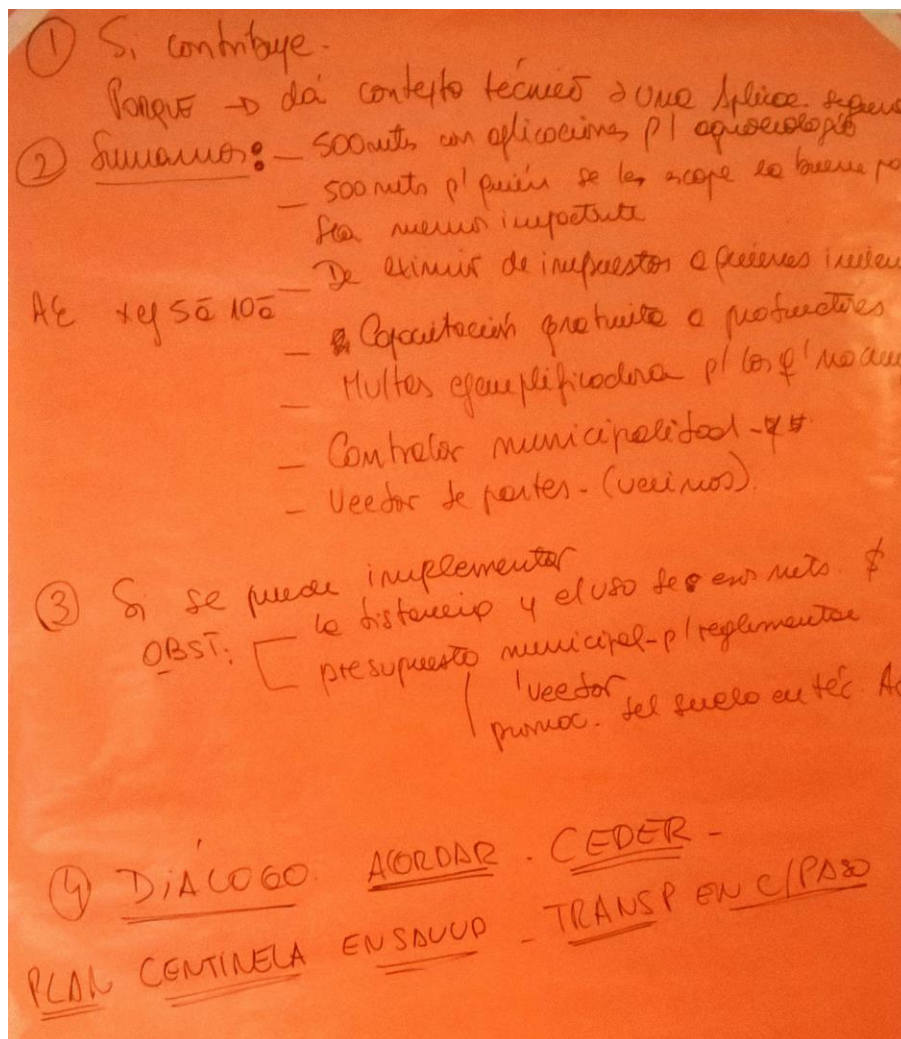 ① Si contribuye.
PORQUE → dá contexto técnico a una Aplicac. segura
② Sumamos: - 500 mts con aplicaciones p/ agroecología
- 500 mts p/ quién se les escape la buena
sea menos impactante
- De eximir de impuestos a quienes
AE + ej 5ã 10ã
- Capacitación gratuita a productores
- Multas ejemplificadora p/ los q'
- Contralor municipalidad -
- Veedor de partes - (vecinos).
③ Si se puede implementar
OBST: la distancia y el uso de esos mts. $
presupuesto municipal - p/ reglamentar
veedor
promoc. del suelo en téc.
④ DIÁLOGO. ACORDAR. CEDER -
PLAN CENTINELA EN SALUD - TRANSP EN C/PASO